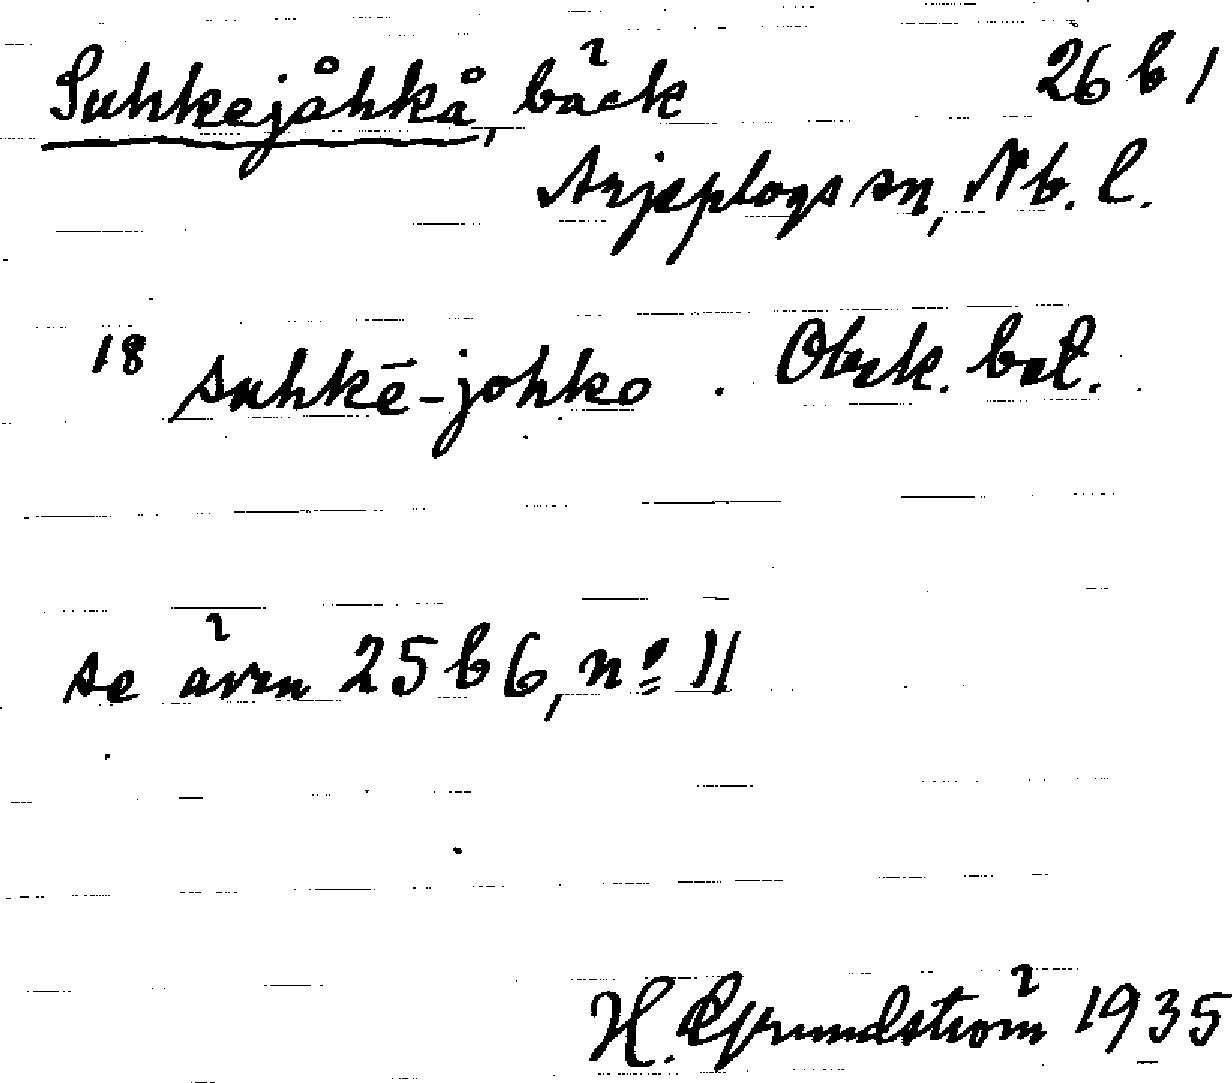 Suhkejåhkå, bäck 26 b 1
Arjeplogs sn, Nb. l.
18 suhkē-johko . Obek. bet.
se även 25 b 6, nº 11
H. Grundström 1935